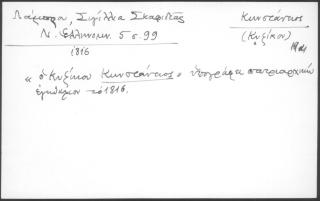 Λάμπρου, Σιγίλλια Σκαφιδιάς
Ν. Ελληνομν. 5 σ. 99
1816
Κωνστάντιος
(Κυζίκου)
« ὁ Κυζίκου Κωνστάντιος » ὑπογράφει πατριαρχικὸν
ἔγγραφον τὸ 1816.